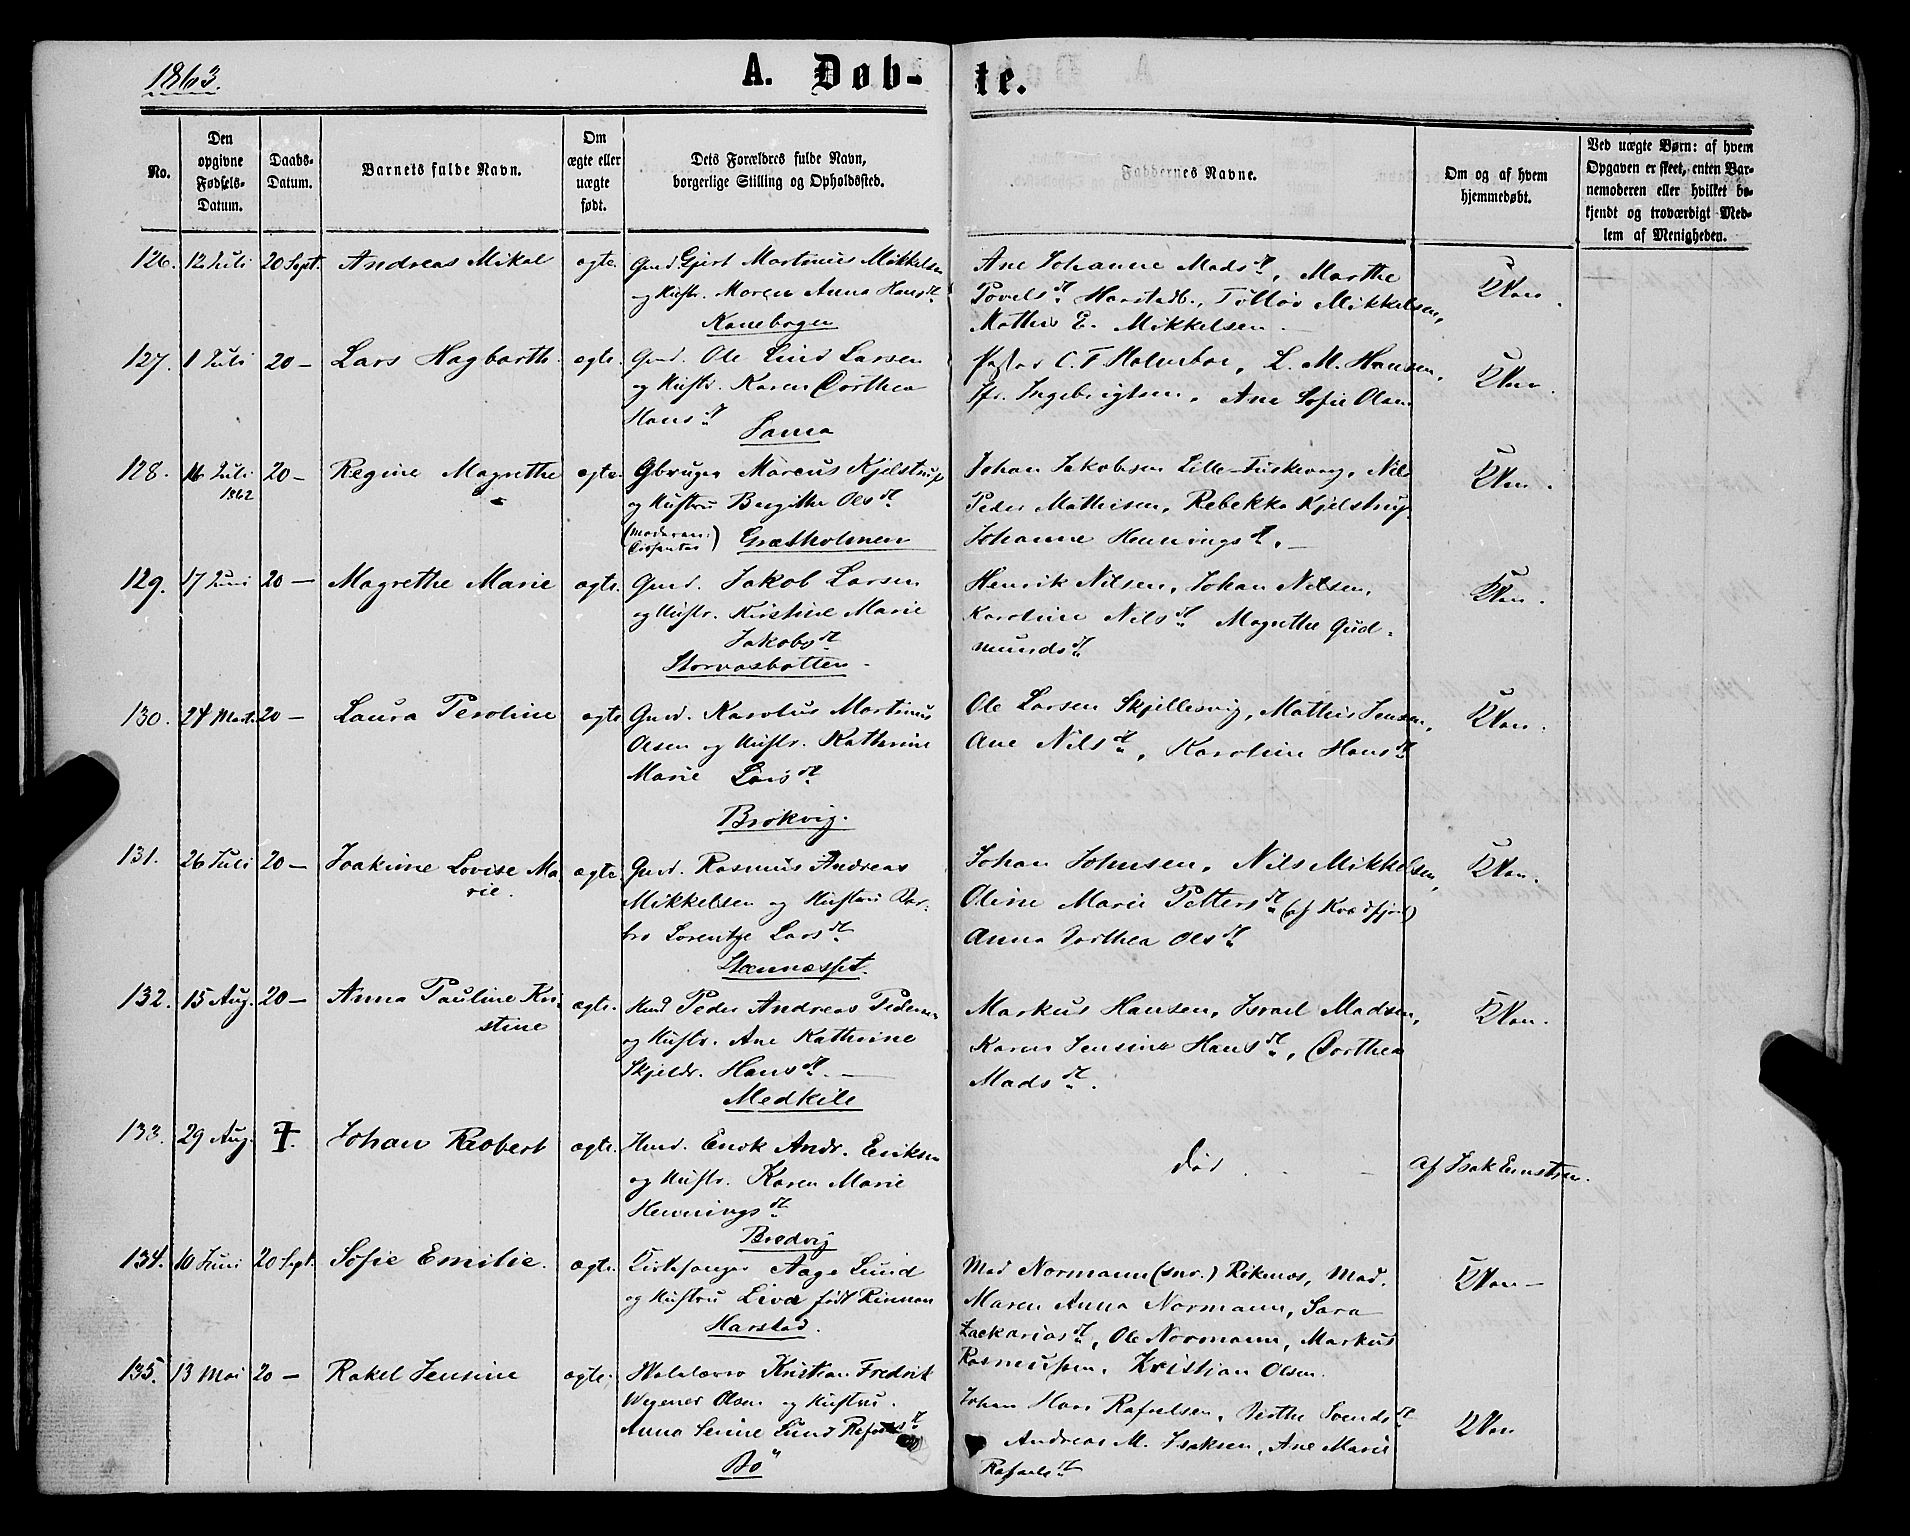 1863.
A. Døb-
te.
No.
Den
opgivne
Fødsels-
Datum.
Daabs-
Datum.
Barnets fulde Navn.
Om
ægte eller
uægte
født.
Dets Forældres fulde Navn,
borgerlige Stilling og Opholdssted.
Faddernes Navne.
Om og af hvem
hjemmedøbt.
Ved uægte Børn: af hvem
Opgaven er skeet, enten Bar-
nemoderen eller hvilket be-
kjendt og troværdigt Med-
lem af Menigheden.
126. 12 Juli 20 Sept. Andreas Mikal ægte. Gmd Gjert Martinus Mikkelsen
og Hustr. Maren Anna Hansdt
Kanebogen
Ane Johanne Madsdt, Marthe
Povelsdt Harstadb., Tølløv Mikkelsen,
Mathis E. Mikkelsen —
127. 1 Juli 20 — Lars Hagbarth. ægte. Gmd. Ole Lind Larsen
og Hustr. Karen Dorthea
Hansdt
Sama
Pastor C. F. , L. M. Hansen,
Jfr. Ingebrigtsen, Ane Sofie Olsen
128. 16 Juli 20 — Regine Magrethe ægte. Gbruger Marcus Kjelstrup
1862
og Hustru Birgithe Olsdt
(Moderen:
Dissenter) Græsholmen
Johan Jakobsen Lille-Fuskevaag, Nils
Peder Mathisen, Rebekka Kjelstrup,
Johanne Henningsdt, —
129. 17 Juni 20 — Magrethe Marie ægte. Gmd. Jakob Larsen
og Hustr. Kirstine Marie
Jakobsdt
Storvasbotten
Henrik Nilsen, Johan Nilsen,
Karoline Nilsdt Magrethe Gud-
mundsdt
130. 24 Marts 20 — Laura Peroline ægte Gmd. Karolus Martinus
Olsen og Hustr. Katharine
Marie Larsdt
Brokvig.
Ole Larsen Skjellesvig, Mathis Jensen,
Ane Nilsdt, Karoline Hansdt
131. 26 Juli 20 — Joakime Lovise Ma
rie. ægte. Gmd. Rasmus Andreas
Mikkelsen og Hustru Bar-
bro Lorentze Larsdt
Stennæsset.
Johan Johnsen, Nils Mikkelsen,
Oline Marie Pettersdt (af Kvædfjord)
Anna Dorthea Olsdt
132. 15 Aug. 20 — Anna Pauline Kri
stine ægte. Hmd Peder Andreas Pedersen
og Hustr. Ane Kathrine
Skjeldr. Hansdt —
Medkile
Markus Hansen, Israel Madsen,
Karen Jensine Hansdt, Dorthea
Madsdt.
133. 29 Aug. †. Johan Robert ægte. Hmd. Enok Andr. Eriksen
og Hustr. Karen Marie
Henningsdt
Bredvig
død.
af Isak Ernstsen.
134. 10 Juni 20 Sept. Sofie Emilie. ægte. Aage Lund
og Hustru Liva født Rinnan
Harstad.
Mad Normann (snr.) Rikenæs, Mad.
Maren Anna Normann, Sara
Zackariasdt, Ole Normann, Markus
Rasmussen, Kristian Olsen.
135. 13 Mai 20 — Rakel Jensine ægte. Skolelærer Kristian Fredrik
Wegener Olsen og Hustru
Anna Senine Lund Rafaelsdt
Bø
Johan Hans Rafaelsen, Berthe Svendsdt
Andreas M. Isaksen, Ane Marie
Rafaelsdt